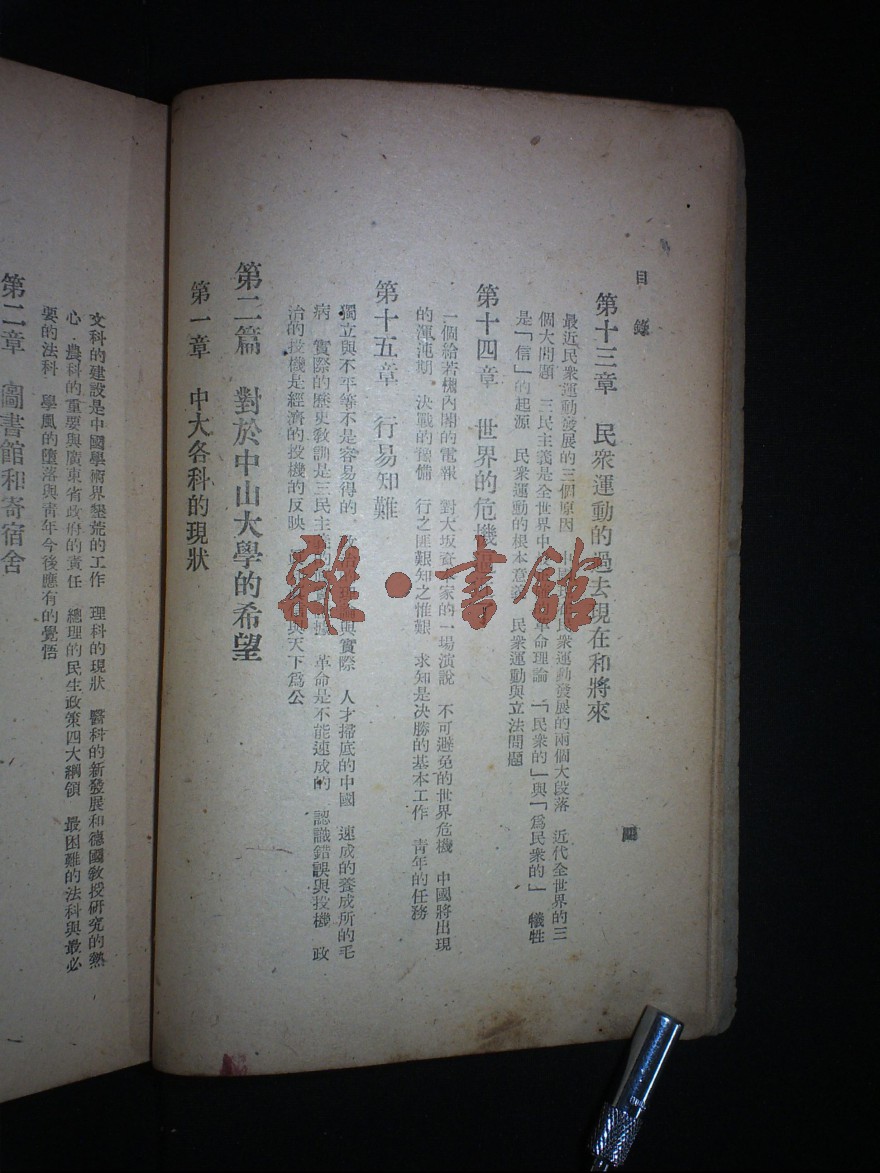 目錄
第十三章 民衆運動的過去現在和將來
最近民衆運動發展的三個原因 民衆運動發展的兩個大段落 近代全世界的三
個大問題 三民主義是全世界 革命理論 「民衆的」與「爲民衆的」 犧牲
是「信」的起源 民衆運動的根本意 民衆運動與立法問題
第十四章 世界的危機
一個給若槻內閣的電報 對大坂資 家的一場演說 不可避免的世界危機 中國將出現
的渾沌期 決戰的豫備 行之匪艱知之惟艱 求知是决勝的基本工作 青年的任務
第十五章 行易知難
獨立與不平等不是容易得的 與實際 人才掃底的中國 速成的養成所的毛
病 實際的歷史敎訓是三民主義的 革命是不能速成的 認識錯誤與投機 政
治的投機是經濟的投機的反映 與天下爲公
第二篇 對於中山大學的希望
第一章 中大各科的現狀
四
文科的建設是中國學術界墾荒的工作 理科的現狀 醫科的新發展和德國敎授硏究的熱
心 農科的重要與廣東省政府的責任 總理的民生政策四大綱領 最困難的法科與最必
要的法科 學風的墮落與靑年今後應有的覺悟
第二章 圖書館和寄宿舍
雜·書館